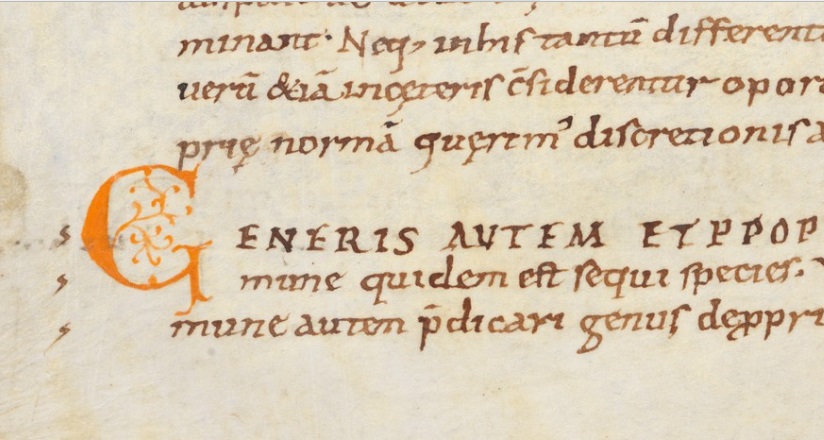 minant· Neq; inhis tantū different
uerū &iā incęteris c̄siderentur opor
prię normā quęrim᾽ discretionis a
GENERIS AUTEM ET PROP
mune quidem est sequi species.
mune autem p̄dicari genus de ppri